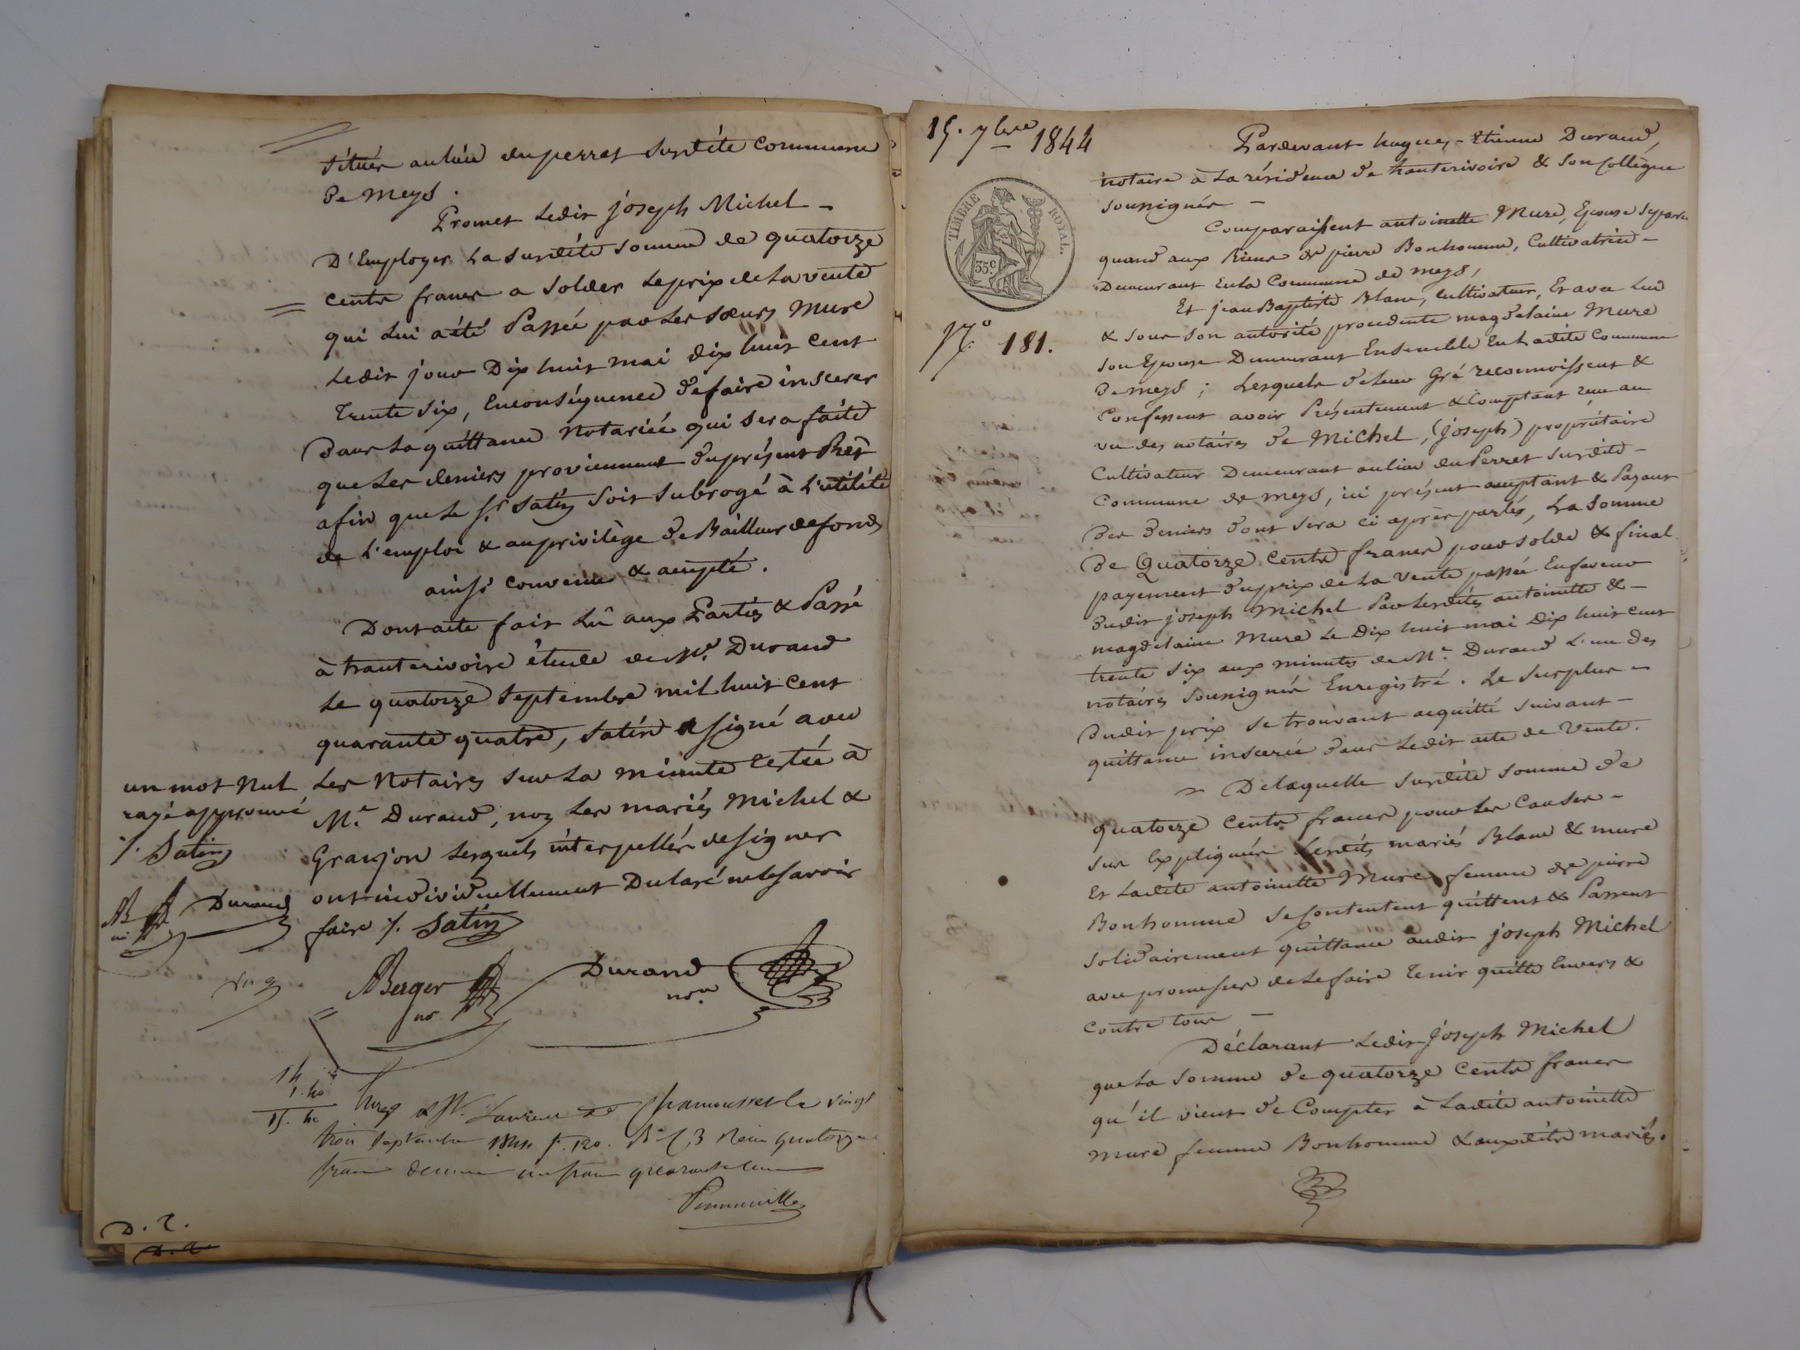 situés au lieu du perret Susdite Commune
de meys.
Promet Ledit joseph Michel –
D'Employer La Susdite Somme de quatorze
Cents francs a Solder Le prix de La vente
qui Lui a été Passée par Les Sœurs Mure
Ledit jour Dix huit mai dix huit Cent
Trente Six, En conséquence de faire inserer
Dans La quittance Notariée qui Sera faite
que Les deniers proviennent du présent Prêt
afin que Le Sr Satin Soit Subrogé à L'utilité
de L'emploi & au privilège de Bailleur de fonds
ainsi convenu & accepté.
Dont acte fait Lû aux Parties & Passé
à hauterivoire étude de Me. Durand
Le quatorze Septembre mil huit Cent
quarante quatre, Satin a signé avec
Les Notaires Sur La minute restée à
Me. Durand, non Les mariés Michel &
Granjon Lesquels interpellés de Signer
ont individuellement Déclaré ne Le Savoir
faire ./. Satin
un mot Nul
rayé approuvé
./. Satin
AB
no
Durand
ABerger
no
Durand
nore
14
1. 40
15. 40
Enreg. à St. Laurent de Chamousset le vingt
trois Septembre 1844 f. 120. Ro C. 3 Reçu quatorze
francs décime un franc quarante centimes
D. 2.
D. 2
15. 7bre 1844
TIMBRE ROYAL.
35c
No 181.
Pardevant hugues-Etienne Durand,
notaire à La résidence de hauterivoire & Son Collègue
Soussignés –
Comparaissent antoinette Mure, Epouse Séparée
quand aux Biens de pierre Bonhomme, Cultivatrice –
Demeurant En La Commune de meys,
Et jean Baptiste Blanc, Cultivateur, Et avec Lui
& Sous Son autorité procedente magdelaine Mure
Son Epouse Demeurant Ensemble En Ladite Commune
De meys ; Lesquels de Leur Gré reconnoissent &
Confessent avoir Présentement & Comptant reçu au
vu des notaires de Michel, (Joseph) propriétaire
Cultivateur Demeurant au lieu du Perret Susdite –
Commune de meys, ici présent acceptant & Payant
Des deniers dont Sera ci après parlés, La Somme
De Quatorze Cents francs pour Solde & final
payement du prix de La vente passée En faveur
dudit joseph Michel Par Lesdites antoinette & –
magdelaine Mure Le Dix huit mai Dix huit cent
trente Six aux minutes de Me. Durand L'un des
notaires Soussignés Enregistré. Le Surplus –
Dudit prix Se trouvant acquitté Suivant –
quittance inserée dans Ledit acte de Vente.
De laquelle Susdite Somme de
quatorze Cents francs pour Les Causes –
Sus Expliquées Lesdits mariés Blanc & mure
Et Ladite antoinette Mure femme de pierre
Bonhomme Se Contentent quittent & Passent
Solidairement quittance audit joseph Michel
avec promesses de Le faire Tenir quitte Envers &
Contre tous –
Déclarant Ledit Joseph Michel
que La Somme de quatorze Cents francs
qu'il vient de Compter à Ladite antoinette
mure femme Bonhomme & auxdits mariés